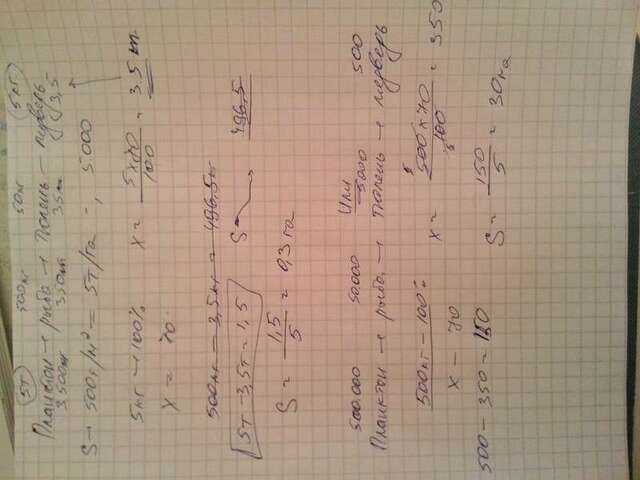 5т 500кг 50кг 5кг
Планктон → рыба → тюлень – медведь
3500кг 350кг 35кг 3,5
S – 500г/м² = 5т/га - , 5000
5кг – 100% x = 5×70/100 = 3,5 кг.
x = 70
500кг – 3,5кг = 496,5кг
5т – 3,5т = 1,5 S 496,5
S = 1,5/5 = 0,3 га
500.000 50000 Или 5000 500
Планктон → рыба → тюлень → медведь
500кг – 100% x = 500×70/100 = 350
x – 70
500 – 350 = 150 S = 150/5 = 30 га